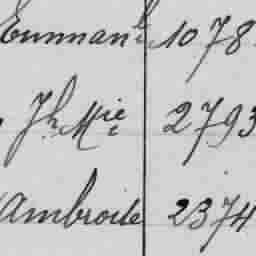 Emman^l 1078
Jh Mie 2793
Ambroise 2374